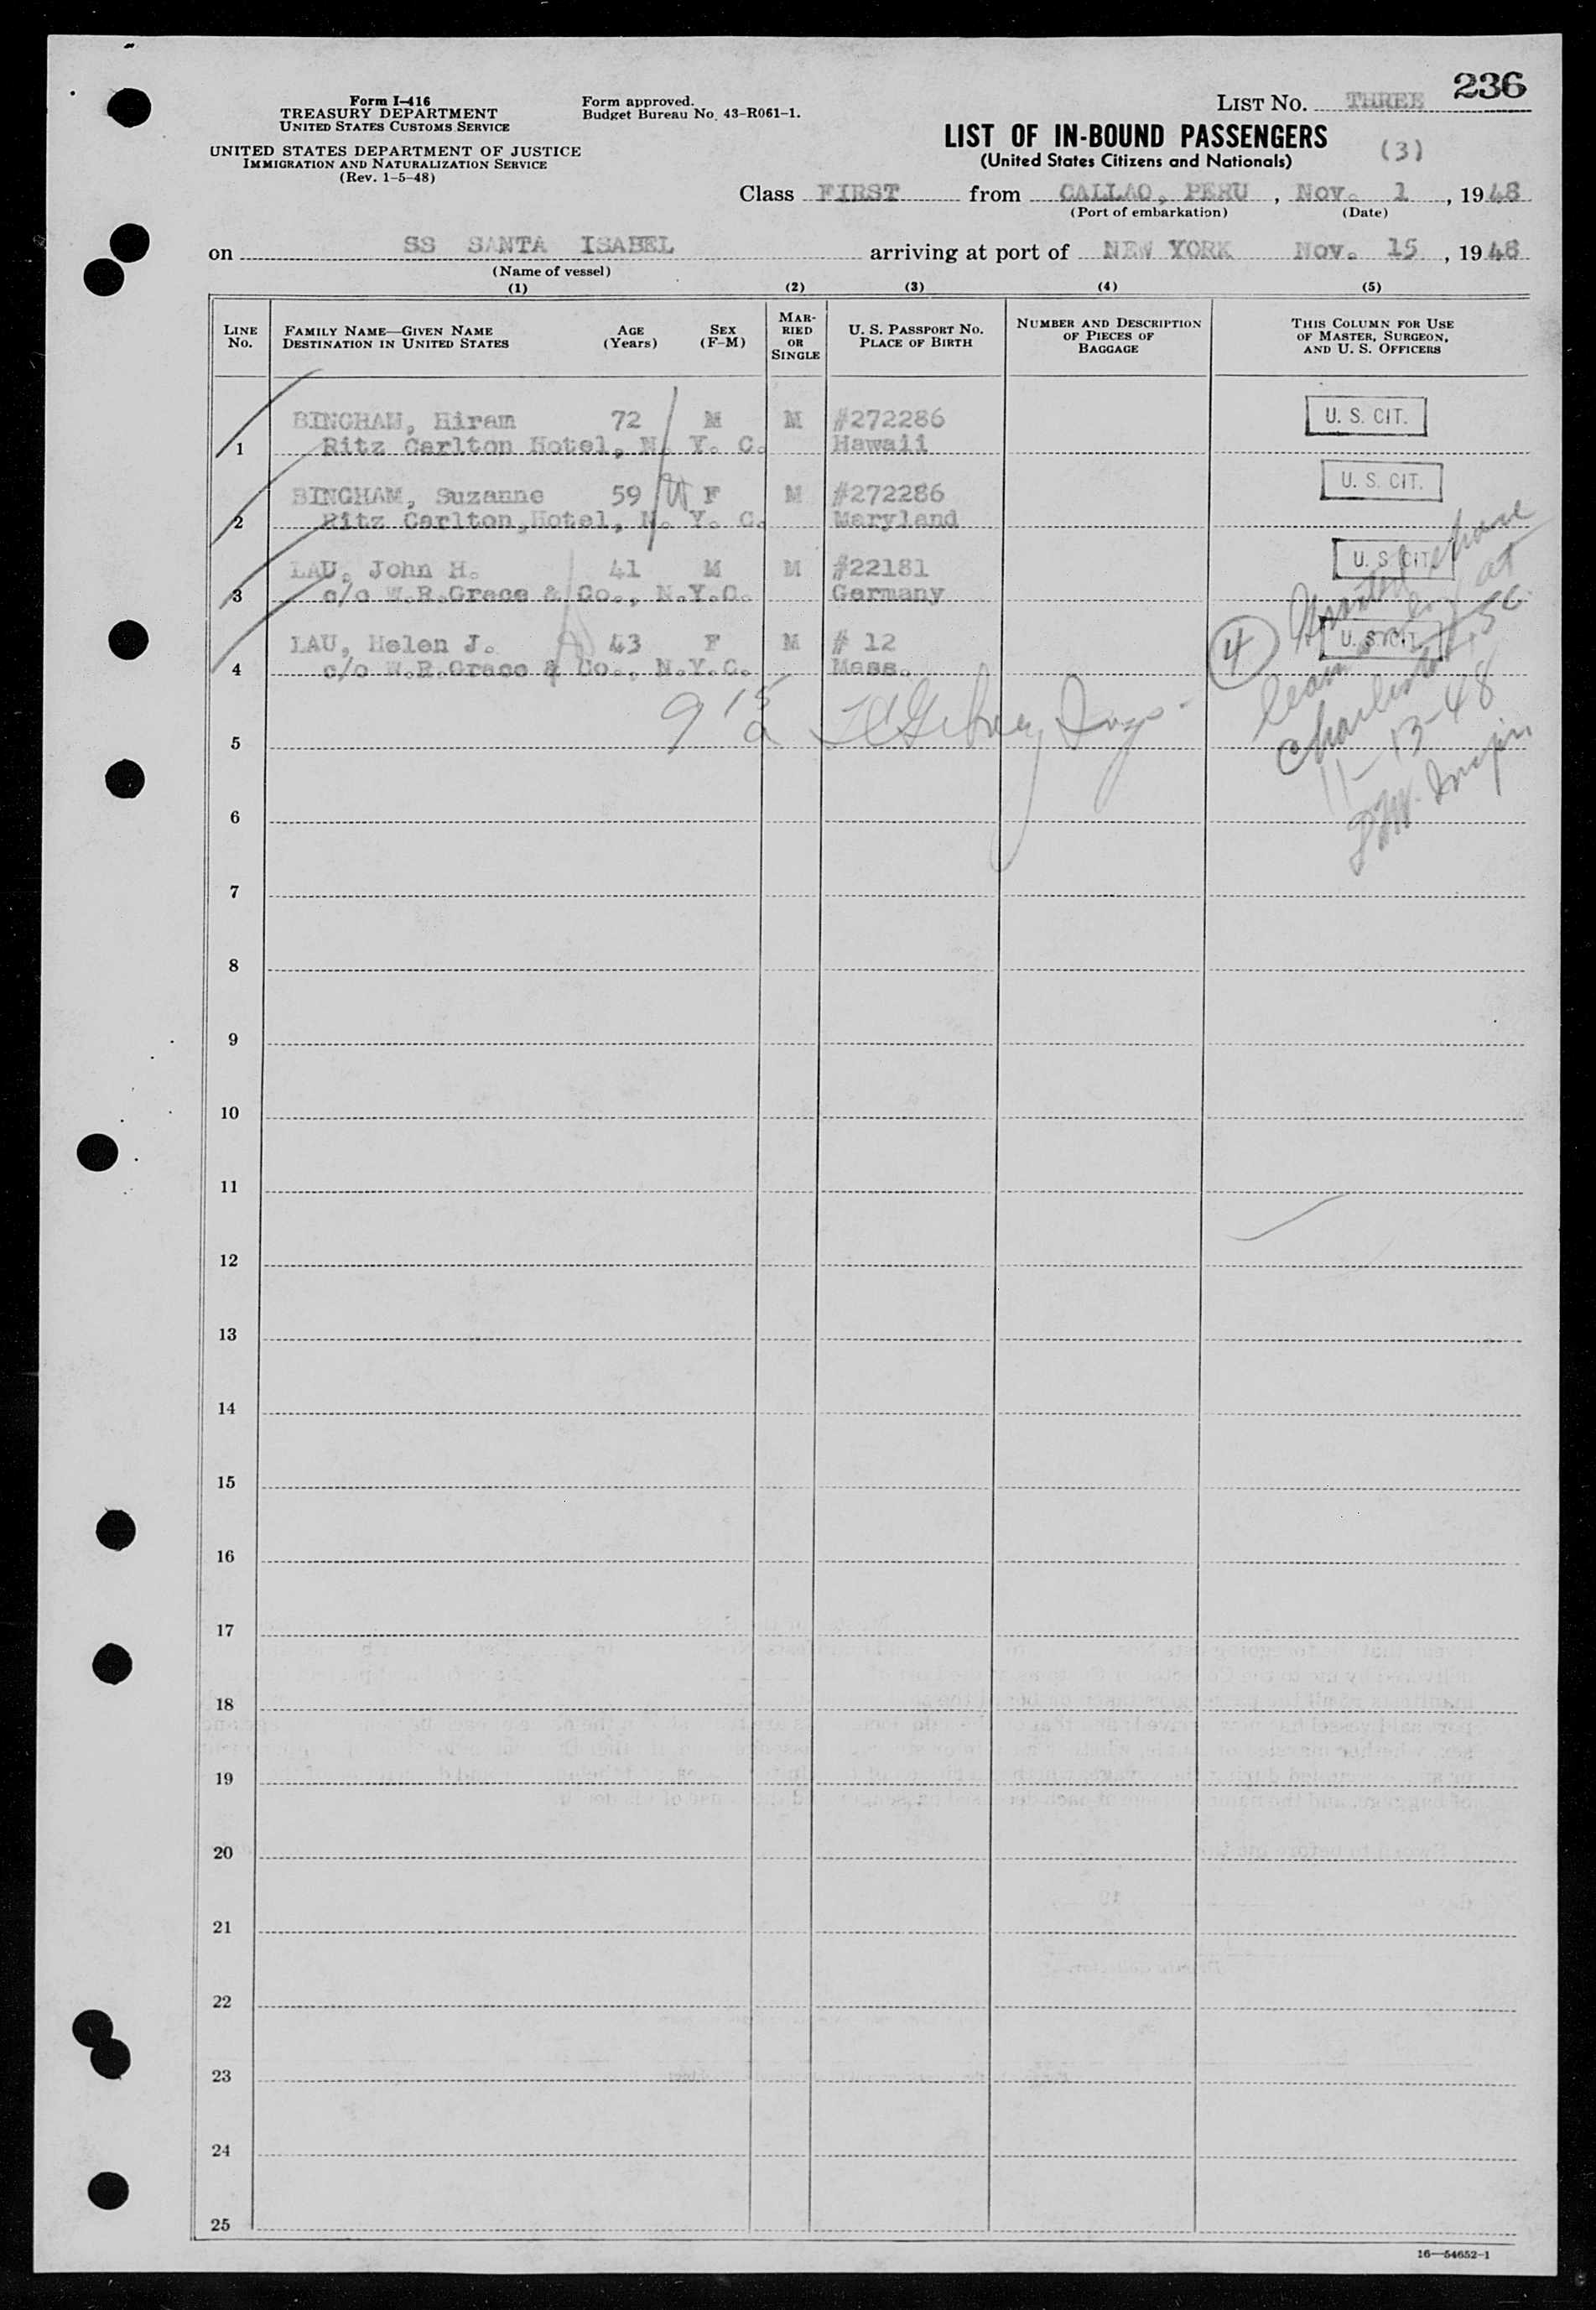 236
Form I-416
TREASURY DEPARTMENT
UNITED STATES CUSTOMS SERVICE
UNITED STATES DEPARTMENT OF JUSTICE
IMMIGRATION AND NATURALIZATION SERVICE
(Rev. 1-5-48)
Form approved.
Budget Bureau No. 43-R061-1.
LIST NO. THREE
LIST OF IN-BOUND PASSENGERS
(United States Citizens and Nationals)
(3)
Class FIRST from CALLAO, PERU, Nov. 1, 1948
(Port of embarkation) (Date)
on SS SANTA ISABEL arriving at port of NEW YORK Nov. 15, 1948
(Name of vessel)
(1) (2) (3) (4) (5)
LINE NO.
FAMILY NAME—GIVEN NAME
DESTINATION IN UNITED STATES
AGE
(Years)
SEX
(F-M)
MAR-
RIED
OR
SINGLE
U. S. PASSPORT NO.
PLACE OF BIRTH
NUMBER AND DESCRIPTION
OF PIECES OF
BAGGAGE
THIS COLUMN FOR USE
OF MASTER, SURGEON,
AND U. S. OFFICERS
BINGHAM, Hiram 72 M M #272286 U. S. CIT.
1 Ritz Carlton Hotel, N. Y. C. Hawaii
BINGHAM, Suzanne 59 F M #272286 U. S. CIT.
2 Ritz Carlton, Hotel, N. Y. C. Maryland
LAU, John H. 41 M M #22181 U. S. CIT.
3 c/o W.R.Grace & Co., N.Y.C. Germany
LAU, Helen J. 43 F M # 12 U. S. CIT.
4 c/o W.R.Grace & Co., N.Y.C. Mass.
4
Granted shore
at
Charleston SC.
11-13-48
9 15 a
5
6
7
8
9
10
11
12
13
14
15
16
17
18
19
20
21
22
23
24
25
16—54652-1